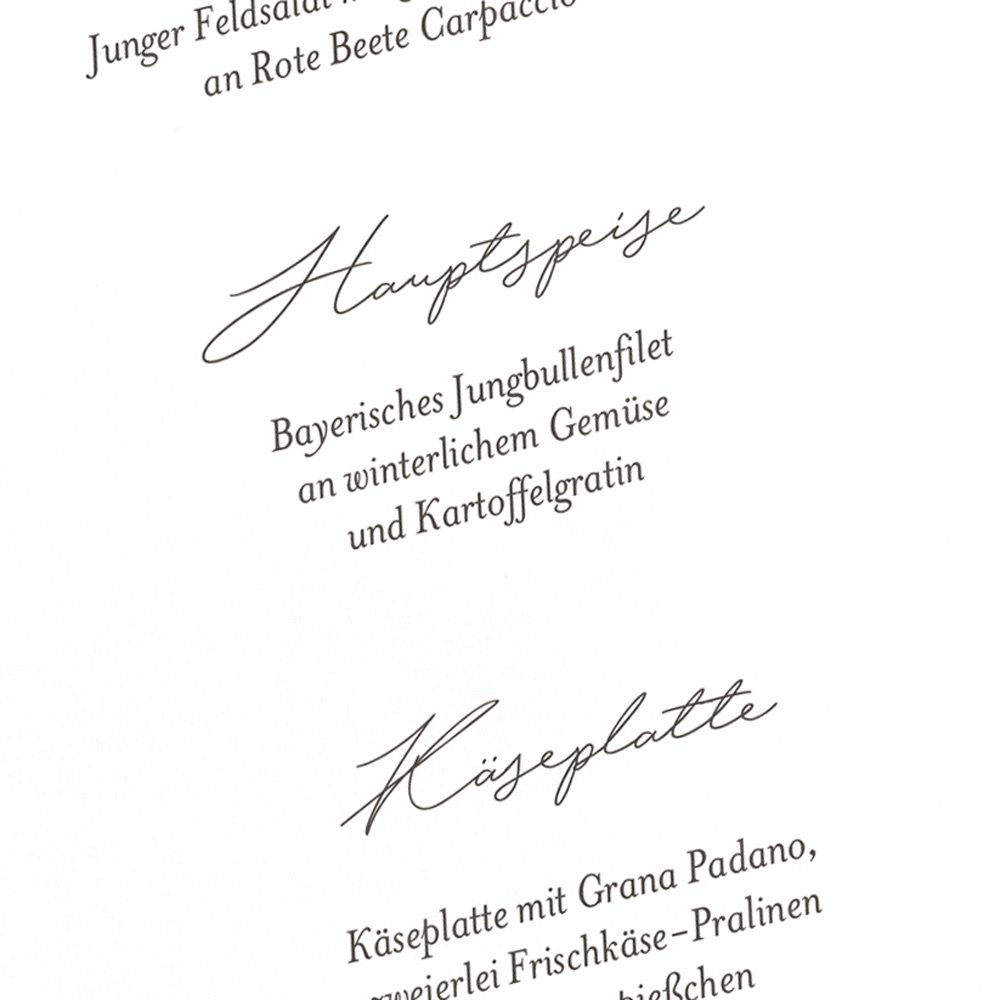 Junger Feldsalat
an Rote Beete Carpaccio
Hauptspeise
Bayerisches Jungbullenfilet
an winterlichem Gemüse
und Kartoffelgratin
Käseplatte
Käseplatte mit Grana Padano,
zweierlei Frischkäse-Pralinen